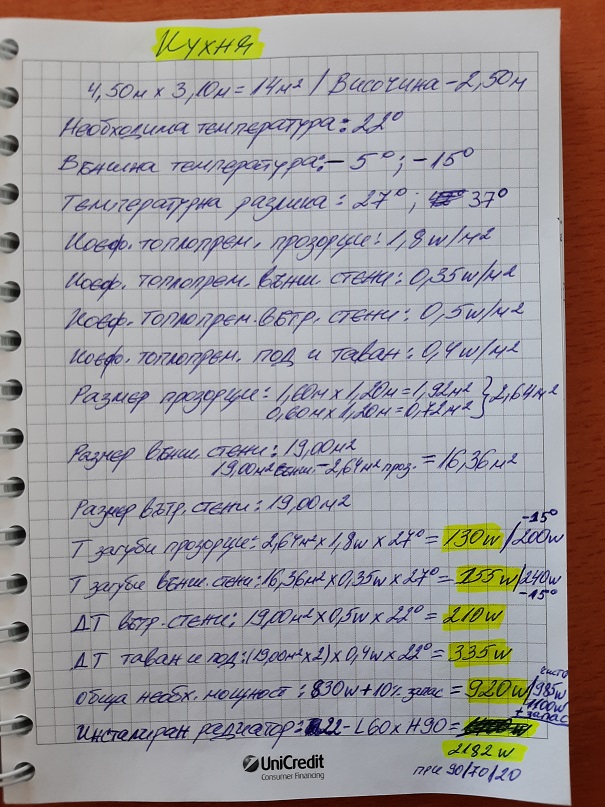 Кухня
4,50м x 3,10м = 14м² / Височина - 2,50м
Необходима температура: 22°
Външна температура: - 5° ; -15°
Температурна разлика: 27° ; 37°
Коеф. топлопрем. прозорци: 1,8w/м²
Коеф. топлопрем. външ. стени: 0,35w/м²
Коеф. топлопрем. вътр. стени: 0,5w/м²
Коеф. топлопрем. под и таван: 0,4w/м²
Размер прозорци: 1,60м x 1,20м = 1,92м² } 2,64м²
0,60м x 1,20м = 0,72м²
Размер външ. стени: 19,00м²
19,00м² външ. - 2,64м² проз. = 16,36м²
Размер вътр. стени: 19,00м²
-15°
Т загуби прозорци: 2,64м² x 1,8w x 27° = 130w / 200w
Т загуби външ. стени: 16,36м² x 0,35w x 27° = 155w / 240w
-15°
ΔТ вътр. стени: 19,00м² x 0,5w x 22° = 210w
ΔТ таван и под: (19,00м² x 2) x 0,4w x 22° = 335w
чисто
Обща необх. мощност: 830w + 10% запас = 920w / 985w
1100w
+ запас
Инсталиран радиатор: 22 - L60 x H90 =
2182w
при 90/70/20
UniCredit
Consumer Financing